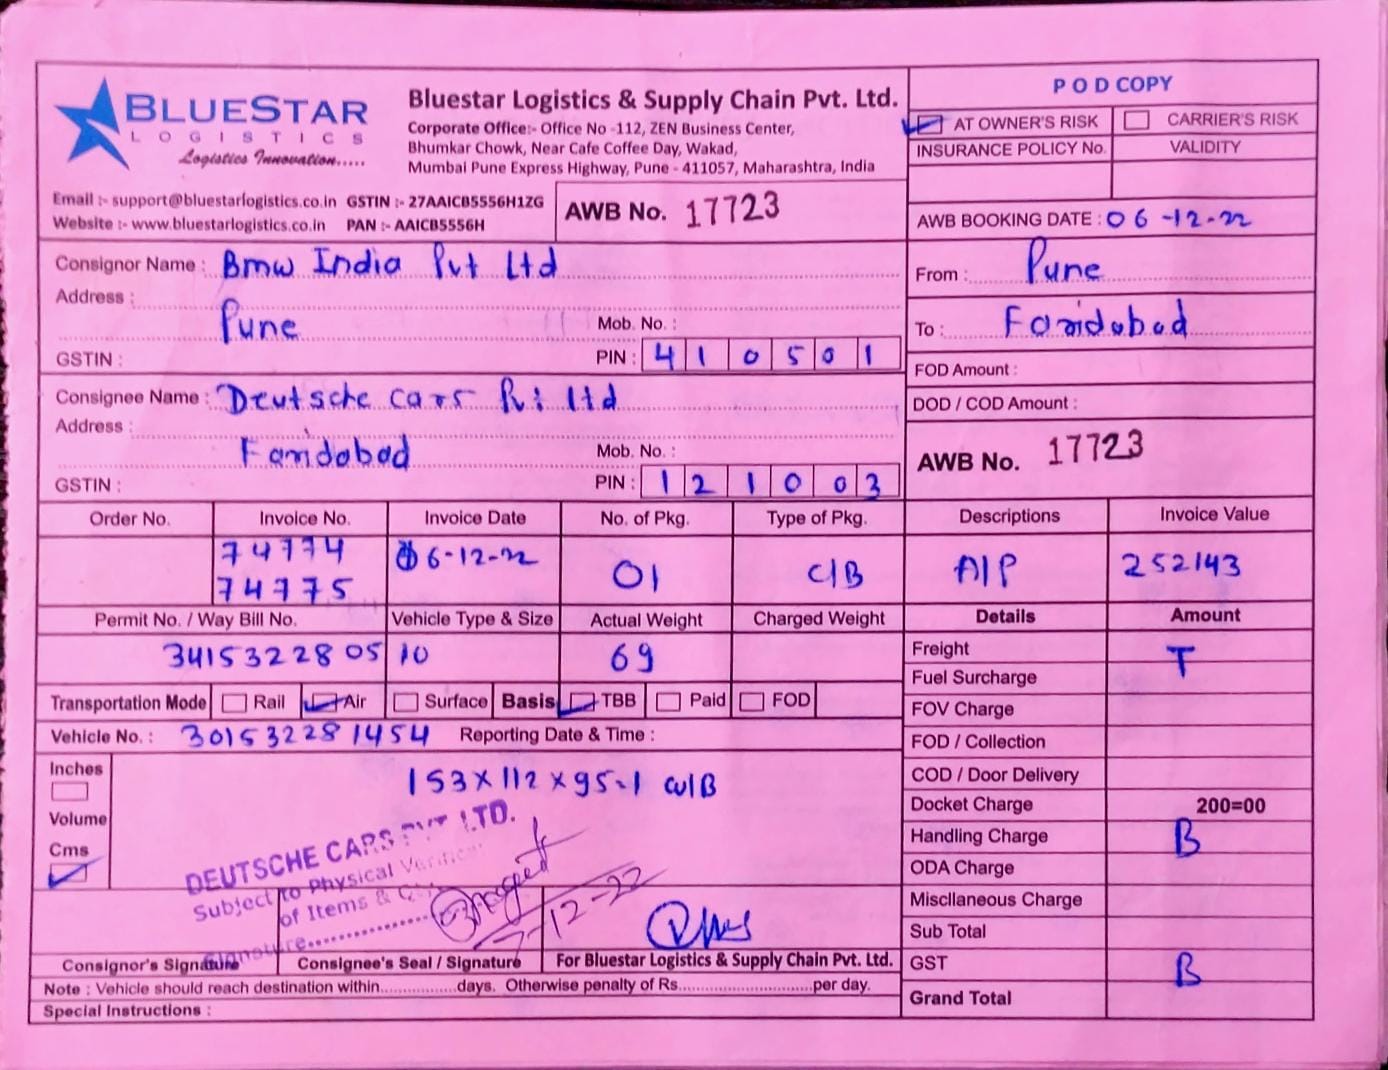 BLUESTAR
LOGISTICS
Logistics Innovation.....
Bluestar Logistics & Supply Chain Pvt. Ltd.
Corporate Office:- Office No -112, ZEN Business Center,
Bhumkar Chowk, Near Cafe Coffee Day, Wakad,
Mumbai Pune Express Highway, Pune - 411057, Maharashtra, India
Email :- support@bluestarlogistics.co.in GSTIN :- 27AAICB5556H1ZG
Website :- www.bluestarlogistics.co.in PAN :- AAICB5556H
AWB No. 17723
P O D COPY
AT OWNER'S RISK CARRIER'S RISK
INSURANCE POLICY No. VALIDITY
AWB BOOKING DATE : 06-12-22
Consignor Name : Bmw India Pvt Ltd
Address :
Pune
Mob. No. :
GSTIN :
PIN : 410501
From : Pune
To : Faridabad
FOD Amount :
DOD / COD Amount :
Consignee Name : Deutsche cars Pvt ltd
Address :
Faridabad
Mob. No. :
GSTIN :
PIN : 121003
AWB No. 17723
Order No. Invoice No. Invoice Date No. of Pkg. Type of Pkg. Descriptions Invoice Value
74774 06-12-22 01 C/B A/P 252143
74775
Permit No. / Way Bill No. Vehicle Type & Size Actual Weight Charged Weight Details Amount
341532280510 69
Freight T
Fuel Surcharge
Transportation Mode Rail Air Surface Basis TBB Paid FOD
FOV Charge
Vehicle No. : 301532281454 Reporting Date & Time :
FOD / Collection
Inches
153x112x95-1 w/B
COD / Door Delivery
Volume
Docket Charge 200=00
Cms
Handling Charge B
ODA Charge
DEUTSCHE CARS PVT LTD.
Subject to Physical
of Items &
Signature
7-12-22
Miscllaneous Charge
Sub Total
Consignor's Signature Consignee's Seal / Signature For Bluestar Logistics & Supply Chain Pvt. Ltd.
GST B
Note : Vehicle should reach destination within..............days. Otherwise penalty of Rs.........................per day.
Grand Total
Special Instructions :